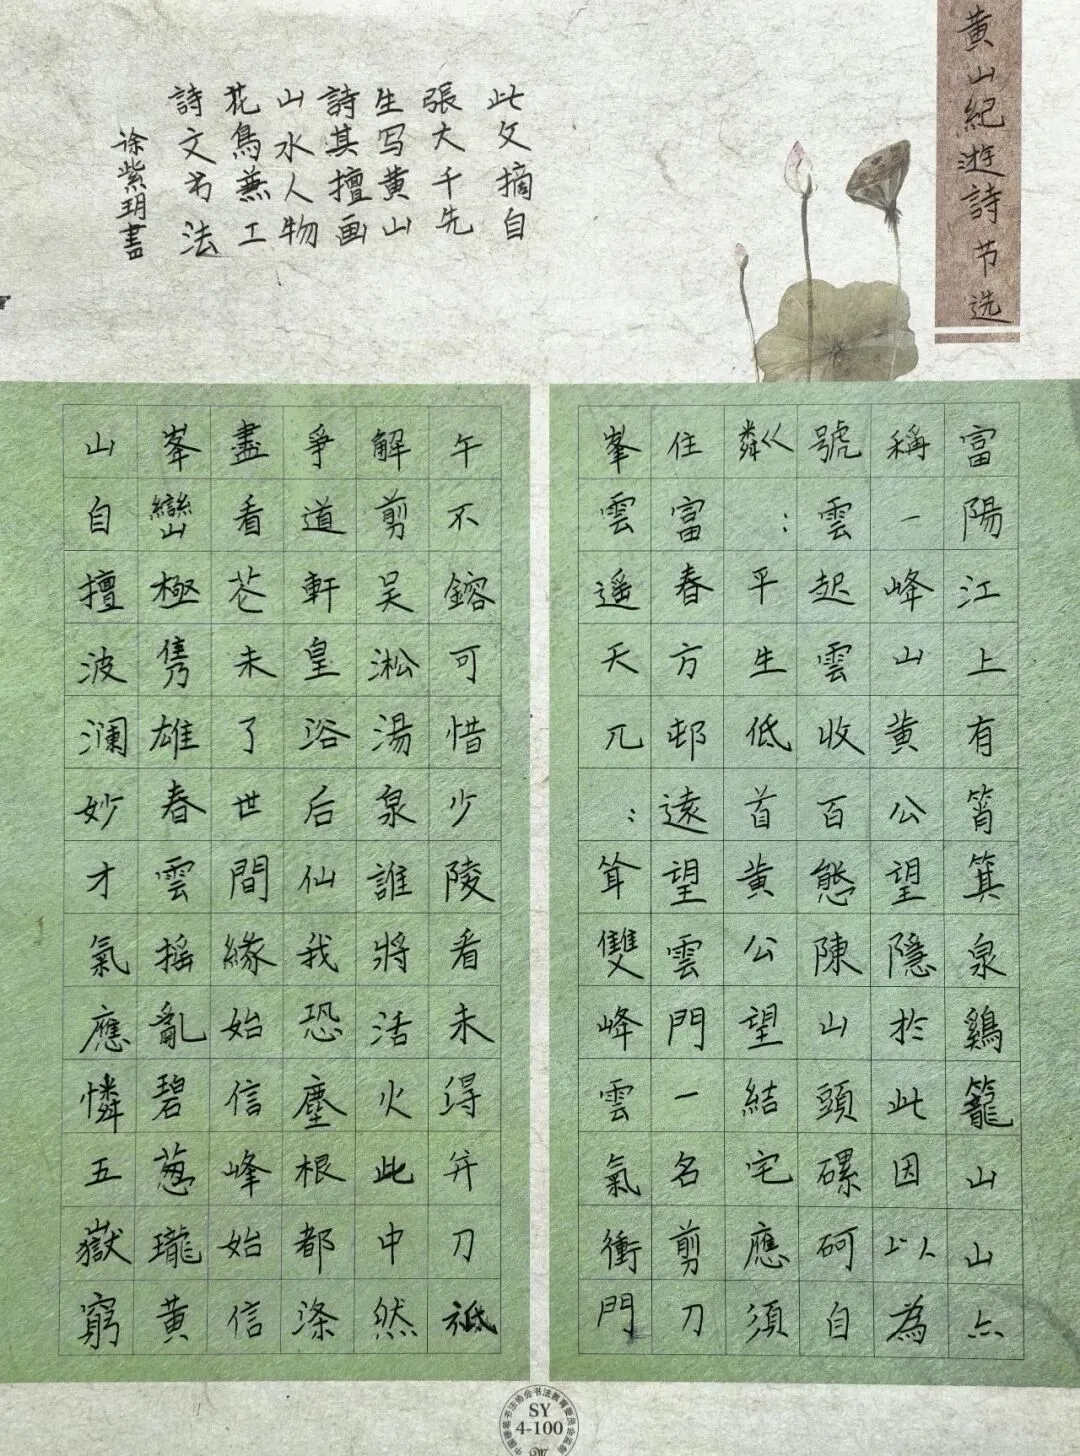 黄山紀遊詩节选
此文摘自
張大千先
生写黄山
詩其擅画
山水人物
花鳥兼工
詩文书法
徐紫玥書
富陽江上有筲箕泉鷄籠山山亦
稱一峰山黄公望隱於此因以為
號雲起雲收百態陳山頭磥砢自
粼巜:平生低首黄公望結宅應須
住富春方邨遠望雲門一名剪刀
峯雲遥天兀:耸雙峰雲氣衝門
午不鎔可惜少陵看未得并刀祗
解剪吴淞湯泉誰將活火此中然
爭道軒皇浴后仙我恐塵根都涤
盡看花未了世間緣始信峰始信
峯巒極雋雄春雲摇亂碧葱瓏黄
山自擅波澜妙才氣應憐五嶽窮
SY
4-100